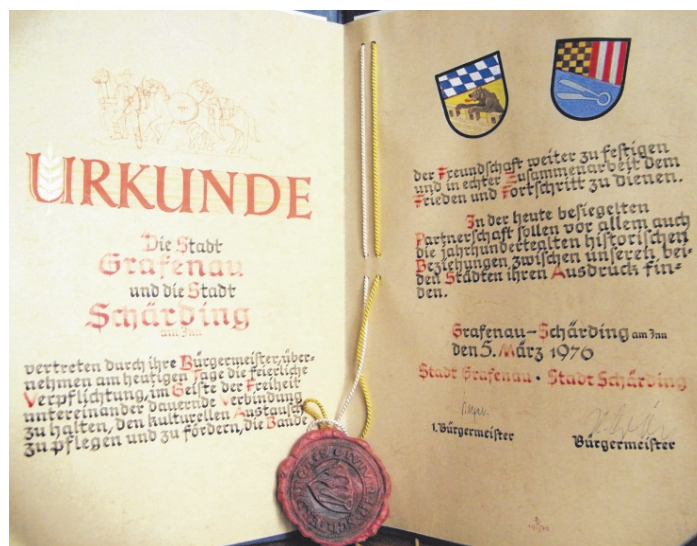 URKUNDE
Die Stadt
Grafenau
und die Stadt
Schärding
am Inn
vertreten durch ihre Bürgermeister, über-
nehmen am heutigen Tage die feierliche
Verpflichtung, im Geiste der Freiheit
untereinander dauernde Verbindung
zu halten, den kulturellen Austausch
zu pflegen und zu fördern, die Bande
der Freundschaft weiter zu festigen
und in echter Zusammenarbeit dem
Frieden und Fortschritt zu dienen.
In der heute besiegelten
Partnerschaft sollen vor allem auch
die jahrhundertealten historischen
Beziehungen zwischen unseren bei-
den Städten ihren Ausdruck fin-
den.
Grafenau-Schärding am Inn
den 5. März 1976
Stadt Grafenau · Stadt Schärding
1. Bürgermeister
Bürgermeister